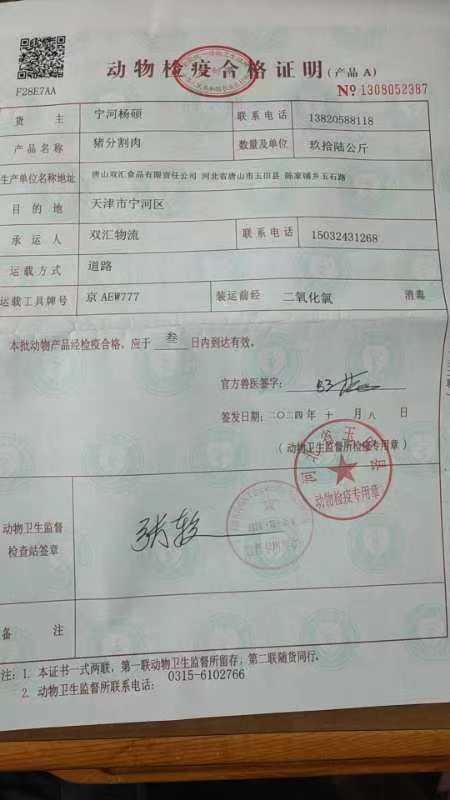 动物检疫合格证明(产品 A)
F28E7AA
№ 1308052387
货主 宁河杨硕 联系电话 13820588118
产品名称 猪分割肉 数量及单位 玖拾陆公斤
生产单位名称地址 唐山双汇食品有限责任公司 河北省唐山市玉田县 陈家铺乡玉石路
目的地 天津市宁河区
承运人 双汇物流 联系电话 15032431268
运载方式 道路
运载工具牌号 京 AEW777 装运前经 二氧化氯 消毒
本批动物产品经检疫合格，应于 叁 日内到达有效。
官方兽医签字：
签发日期：二〇二四年 十 月 八 日
(动物卫生监督所检疫专用章)
动物检疫专用章
动物卫生监督
检查站签章
备注
注：1. 本证书一式两联，第一联动物卫生监督所留存，第二联随货同行。
2. 动物卫生监督所联系电话：0315-6102766